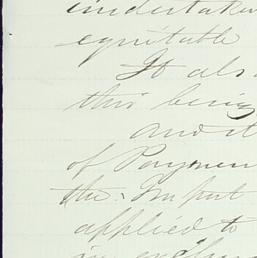 undertake
equitable
It als
this being
and it
of Paymen
the Input
applied to